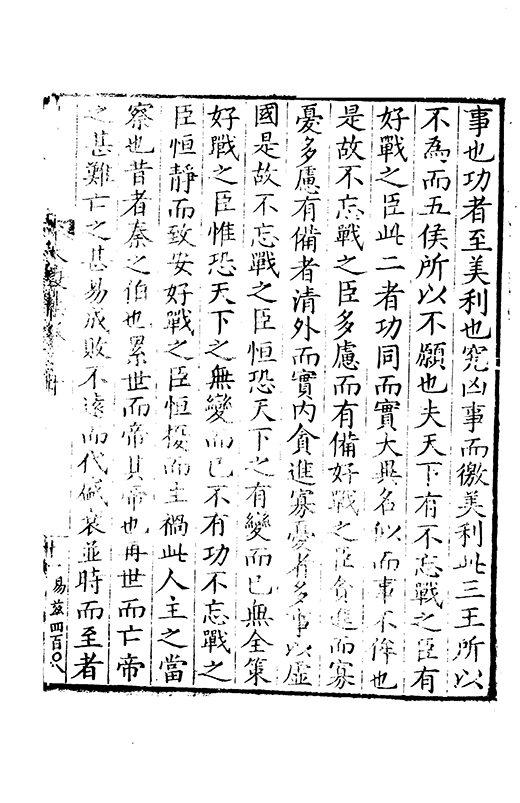 事也功者至美利也究凶事而徼美利此三王所以
不為而五侯所以不願也夫天下有不忘戰之臣有
好戰之臣此二者功同而實大異名似而事不侔也
是故不忘戰之臣多慮而有備好戰之臣貪進而寡
憂多慮有備者清外而實内貪進寡憂者多事以虛
國是故不忘戰之臣恒恐天下之有變而已無全策
好戰之臣惟恐天下之無變而已不有功不忘戰之
臣恒靜而致安好戰之臣恒擾而主禍此人主之當
察也昔者秦之伯也累世而帝其帝也再世而亡帝
之甚難亡之甚易成敗不遠而代衰並時而至者
易兹四百〇八